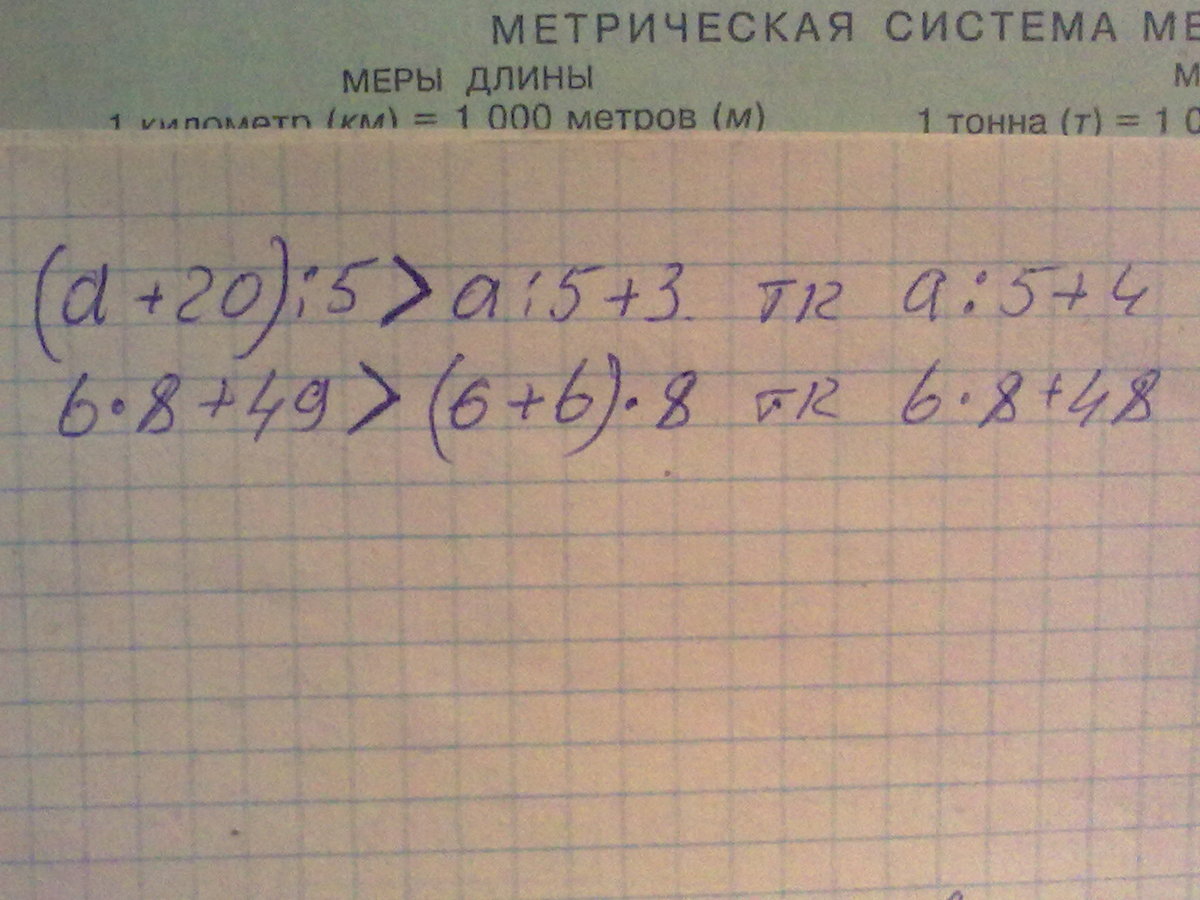 МЕТРИЧЕСКАЯ СИСТЕМА МЕ
МЕРЫ ДЛИНЫ
М
1 километр (км) = 1 000 метров (м)
1 тонна (т) = 1 0
(a +20):5 > a:5+3 тк a:5+4
6·8+49 > (6+6)·8 тк 6·8+48